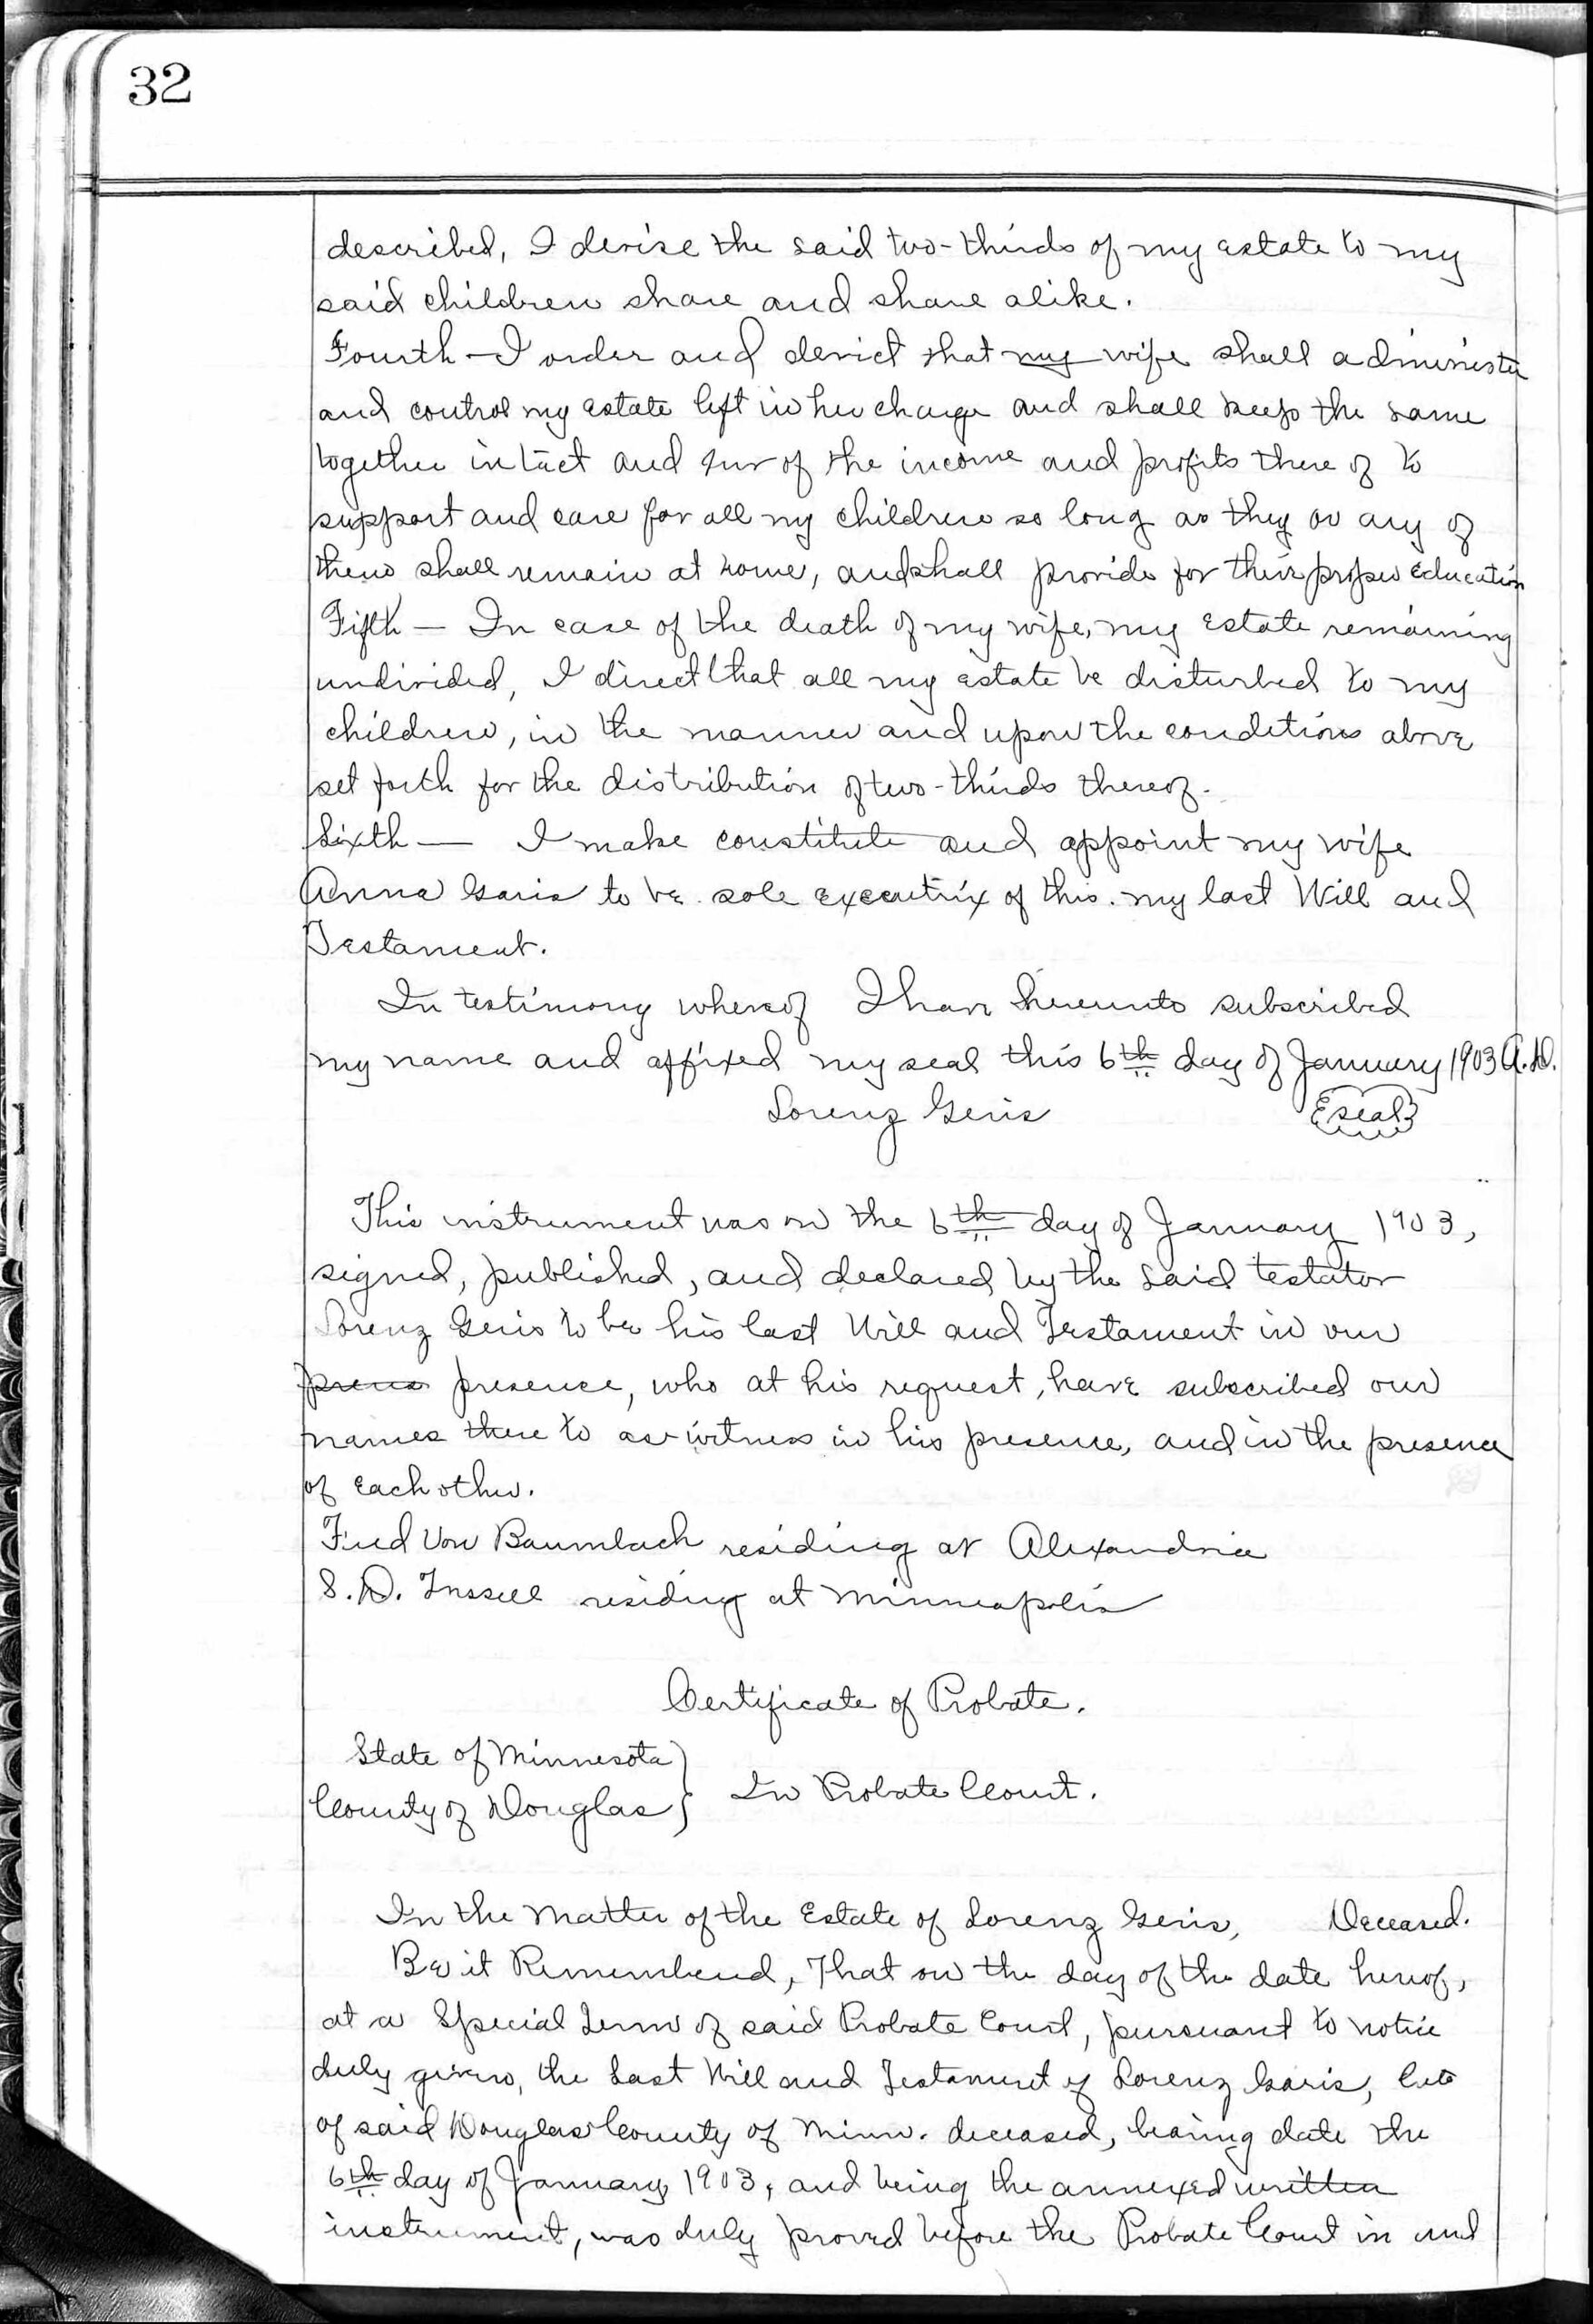 32
described, I devise the said two-thirds of my estate to my
said children share and share alike.
Fourth — I order and derict that my wife shall administer
and control my estate left in her charge and shall keep the same
together intact and out of the income and profits there of to
support and care for all my children so long as they or any of
them shall remain at home, and shall provide for their proper education
Fifth — In case of the death of my wife, my estate remaining
undivided, I direct that all my estate be disturbed to my
children, in the manner and upon the conditions above
set forth for the distribution of two-thirds thereof.
Sixth — I make constitute and appoint my wife
Anna Garis to be sole executrix of this my last Will and
Testament.
In testimony whereof I have hereunto subscribed
my name and affixed my seal this 6th day of January 1903 A.D.
Lorenz Geris seal
This instrument was on the 6th day of January 1903,
signed, published, and declared by the said testator
Lorenz Geris to be his last Will and Testament in our
presence, who at his request, have subscribed our
names there to as witness in his presence, and in the presence
of each other.
Fred Von Baumbach residing at Alexandria
S. D. residing at Minneapolis
Certificate of Probate.
State of Minnesota }
County of Douglas } In Probate Court.
In the Matter of the Estate of Lorenz Geris, Deceased.
Be it Remembered, That on the day of the date hereof,
at a Special Term of said Probate Court, pursuant to notice
duly given, the Last Will and Testament of Lorenz Garis, late
of said Douglas County of Minn. deceased, bearing date the
6th day of January, 1903, and being the annexed written
instrument, was duly proved before the Probate Court in and